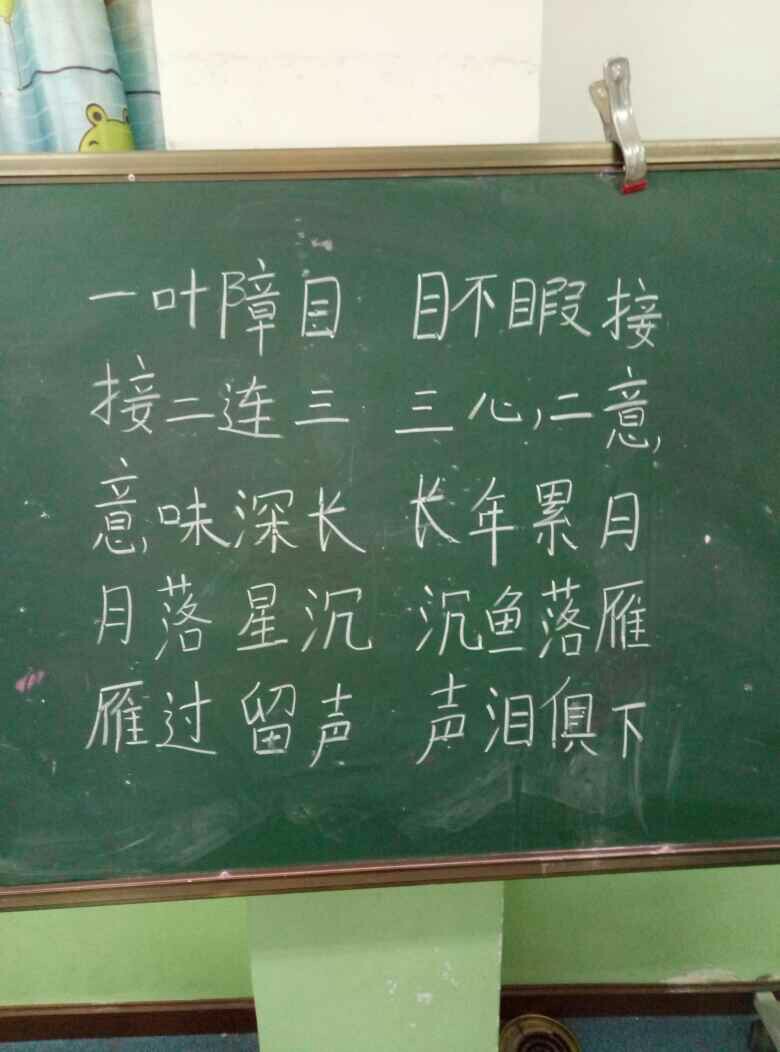 一叶障目 目不暇接
接二连三 三心二意
意味深长 长年累月
月落星沉 沉鱼落雁
雁过留声 声泪俱下